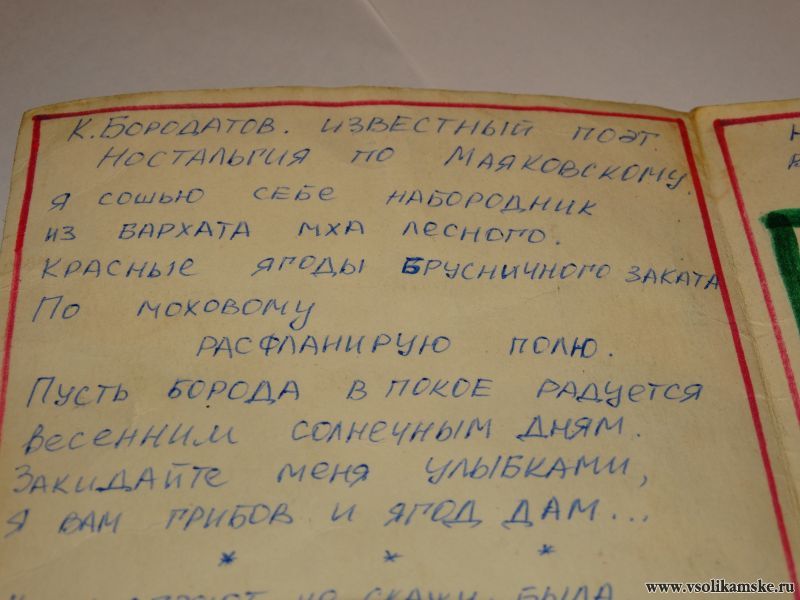 К. БОРОДАТОВ. ИЗВЕСТНЫЙ ПОЭТ.
НОСТАЛЬГИЯ ПО МАЯКОВСКОМУ.
Я СОШЬЮ СЕБЕ НАБОРОДНИК
ИЗ БАРХАТА МХА ЛЕСНОГО.
КРАСНЫЕ ЯГОДЫ БРУСНИЧНОГО ЗАКАТА
ПО МОХОВОМУ
РАСФЛАНИРУЮ ПОЛЮ.
ПУСТЬ БОРОДА В ПОКОЕ РАДУЕТСЯ
ВЕСЕННИМ СОЛНЕЧНЫМ ДНЯМ.
ЗАКИДАЙТЕ МЕНЯ УЛЫБКАМИ,
Я ВАМ ГРИБОВ И ЯГОД ДАМ...
* * *
НЕ СКАЖУ, БЫЛА
www.vsolikamske.ru